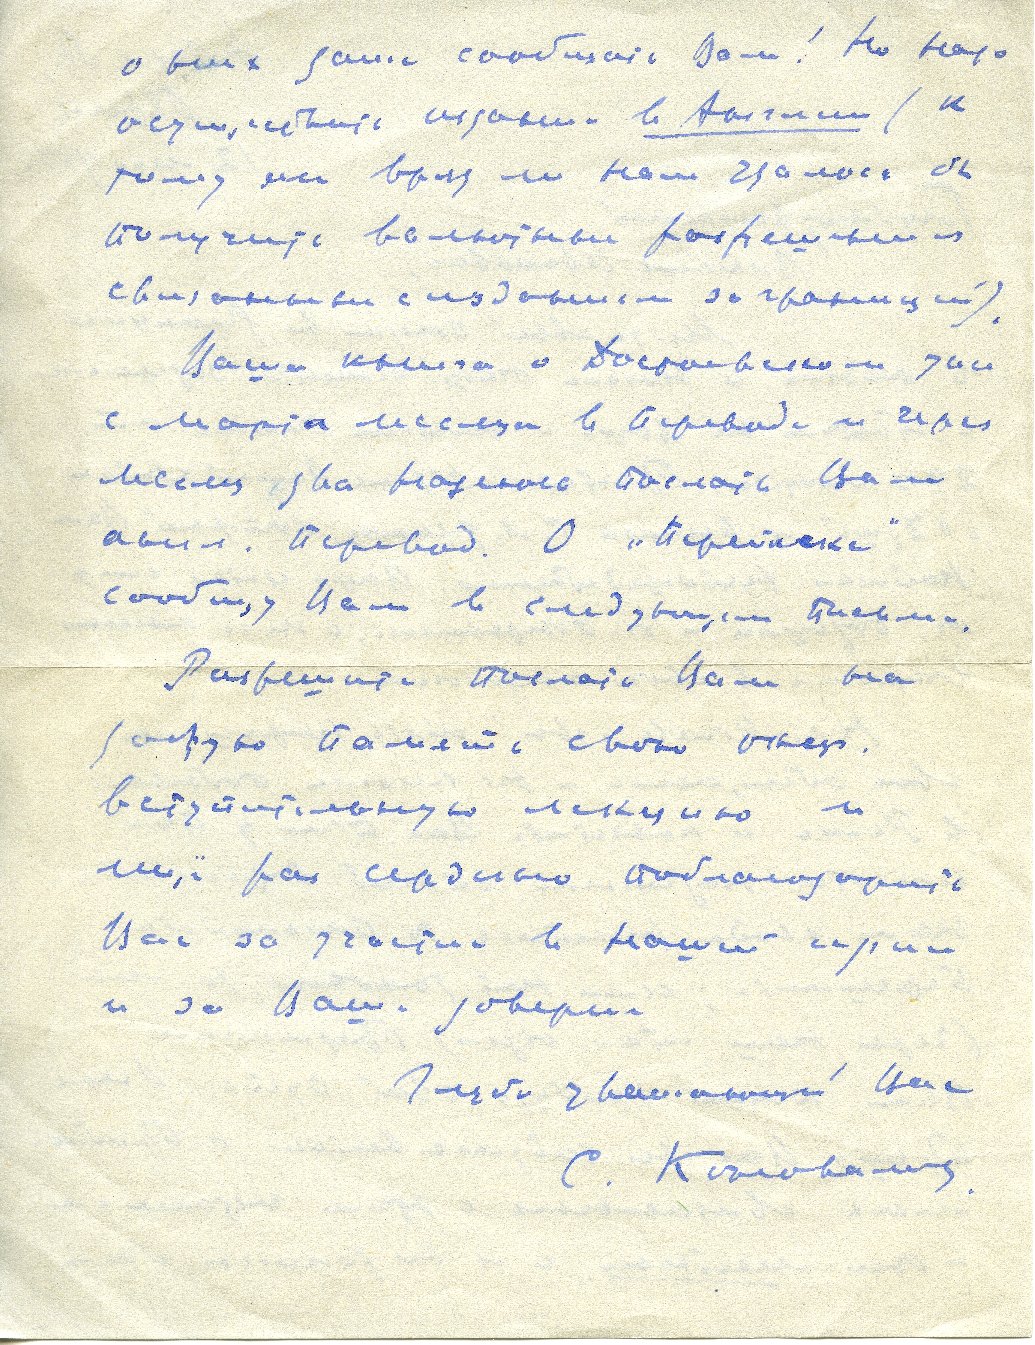 о них Вам сообщать Вам! Но надо
осуществить издание в Англии (к
тому же вряд ли нам удалось бы
получить валютные разрешения
связанные с изданием за границей).
Ваша книга о Достоевском уже
с марта месяца в переводе и через
месяц два надеюсь послать Вам
англ. перевод. О „Переписке"
сообщу Вам в следующем письме.
Разрешите послать Вам на
добрую память свою оксф.
вступительную лекцию и
ещё раз сердечно поблагодарить
Вас за участие в нашей серии
и за Ваше доверие
Глубоко уважающий Вас
С. Коновалов.